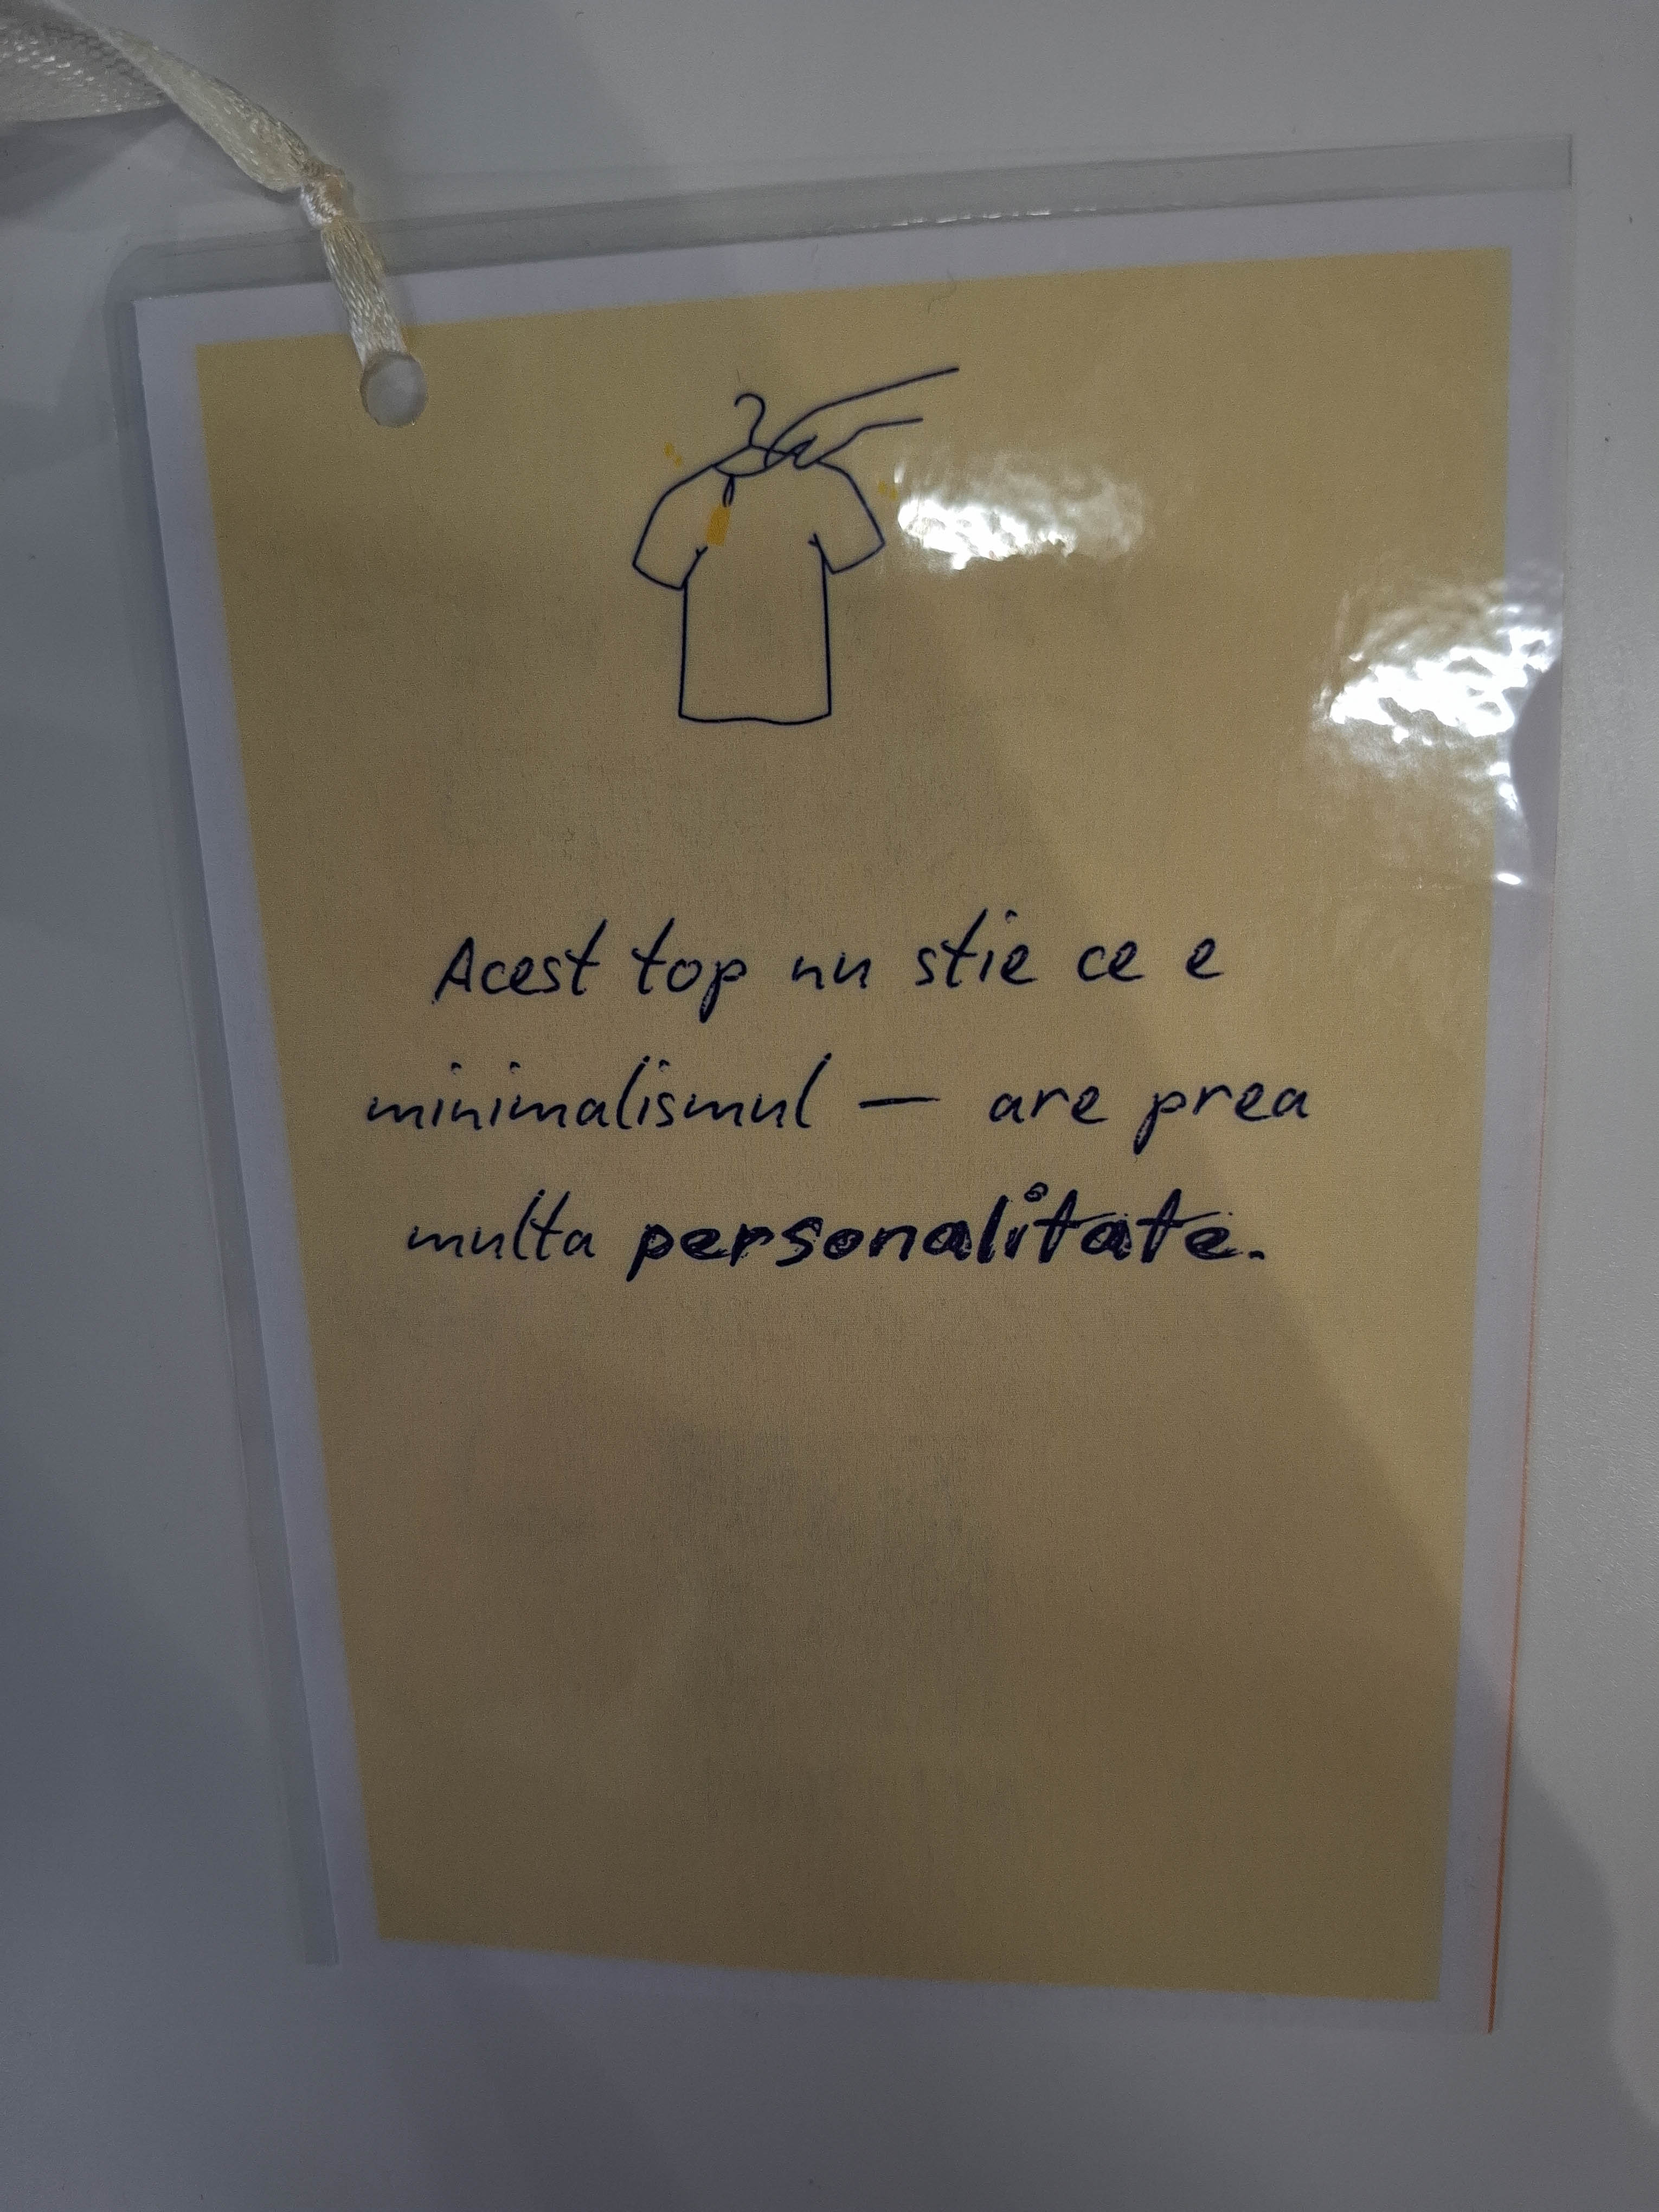 Acest top nu stie ce e
minimalismul — are prea
multa personalitate.